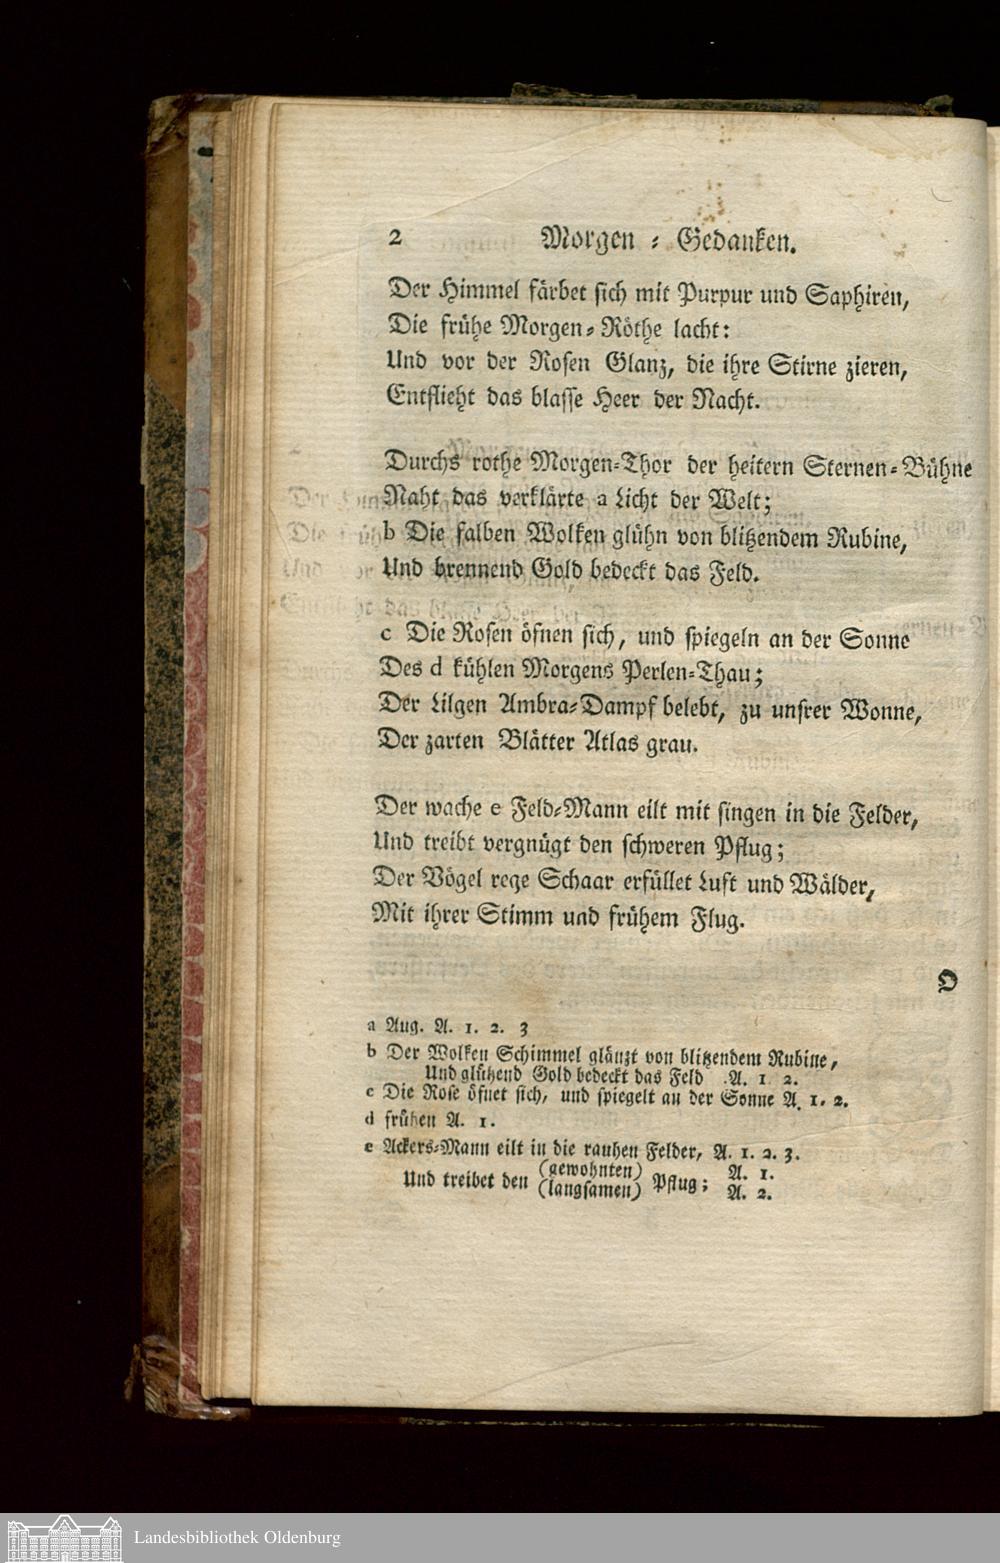 2 Morgen-Gedanken.
Der Himmel färbet sich mit Purpur und Saphiren,
Die frühe Morgen-Röthe lacht:
Und vor der Rosen Glanz, die ihre Stirne zieren,
Entflieht das blasse Heer der Nacht.
Durchs rothe Morgen-Thor der heitern Sternen-Bühne
Naht das verklärte a Licht der Welt;
b Die falben Wolken glühn von blitzendem Rubine,
Und brennend Gold bedeckt das Feld.
c Die Rosen öfnen sich, und spiegeln an der Sonne
Des d kühlen Morgens Perlen-Thau;
Der Lilgen Ambra-Dampf belebt, zu unsrer Wonne,
Der zarten Blätter Atlas grau.
Der wache e Feld-Mann eilt mit singen in die Felder,
Und treibt vergnügt den schweren Pflug;
Der Vögel rege Schaar erfüllet Luft und Wälder,
Mit ihrer Stimm und frühem Flug.
O
a Aug. A. 1. 2. 3
b Der Wolken Schimmel glänzt von blitzendem Rubine,
Und glützend Gold bedeckt das Feld A. 1 2.
c Die Rose öfnet sich, und spiegelt an der Sonne A. 1. 2.
d frühen A. 1.
e Ackers-Mann eilt in die rauhen Felder, A. 1. 2. 3.
Und treibet den (gewohnten) Pflug; A. 1.
(langsamen) A. 2.
Landesbibliothek Oldenburg